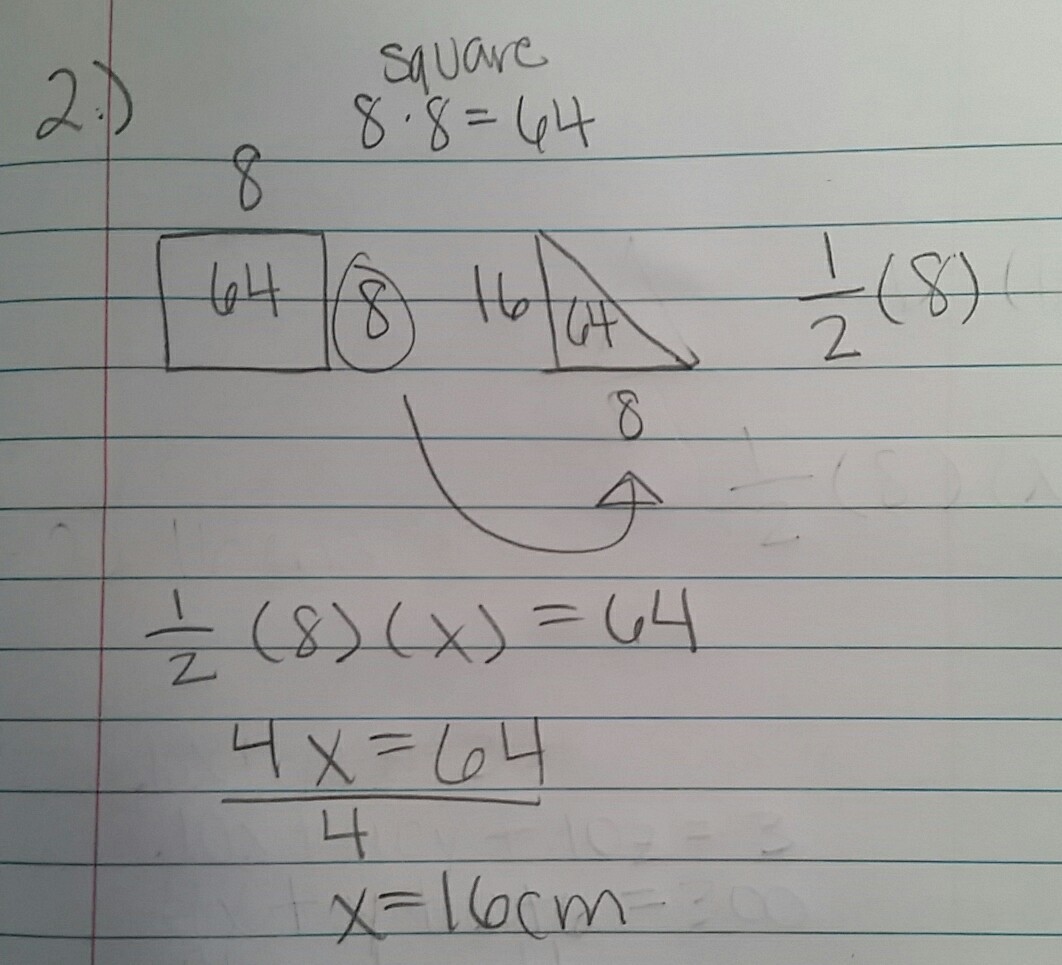 2.)
square
8·8=64
8
64 8 16 64 1/2 (8)
8
1/2 (8)(x) = 64
4x = 64
4
x = 16cm